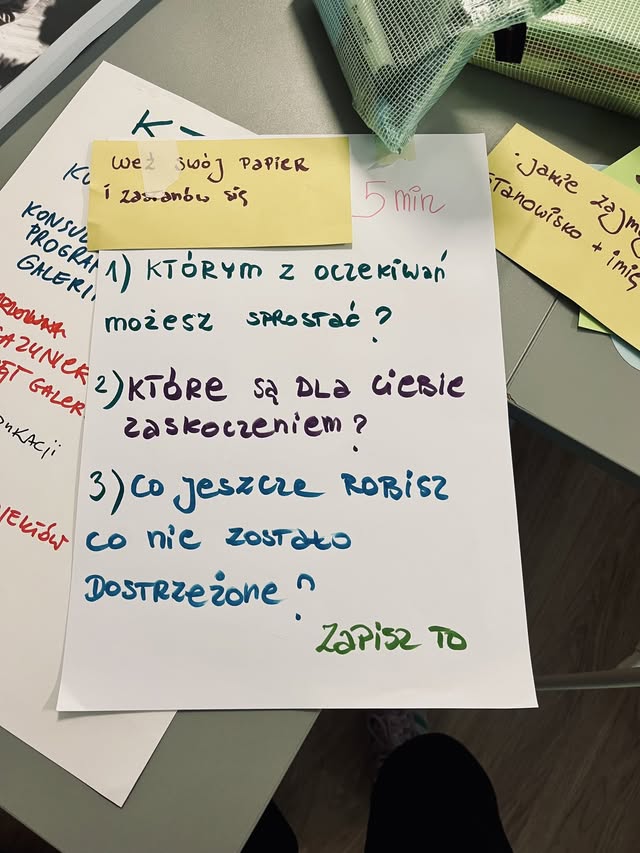 weź swój papier
i zastanów się
5 min
1) KTÓRYM z oczekiwań
możesz sprostać?
2) KTÓRE są DLA CIEBIE
zaskoczeniem?
3) Co jeszcze ROBISZ
co nie zostało
DOSTRZEżONE?
ZAPISZ TO
• jakie zajm
stanowisko + imię
K
KONSUL
PROGRA
GALERI
GALER